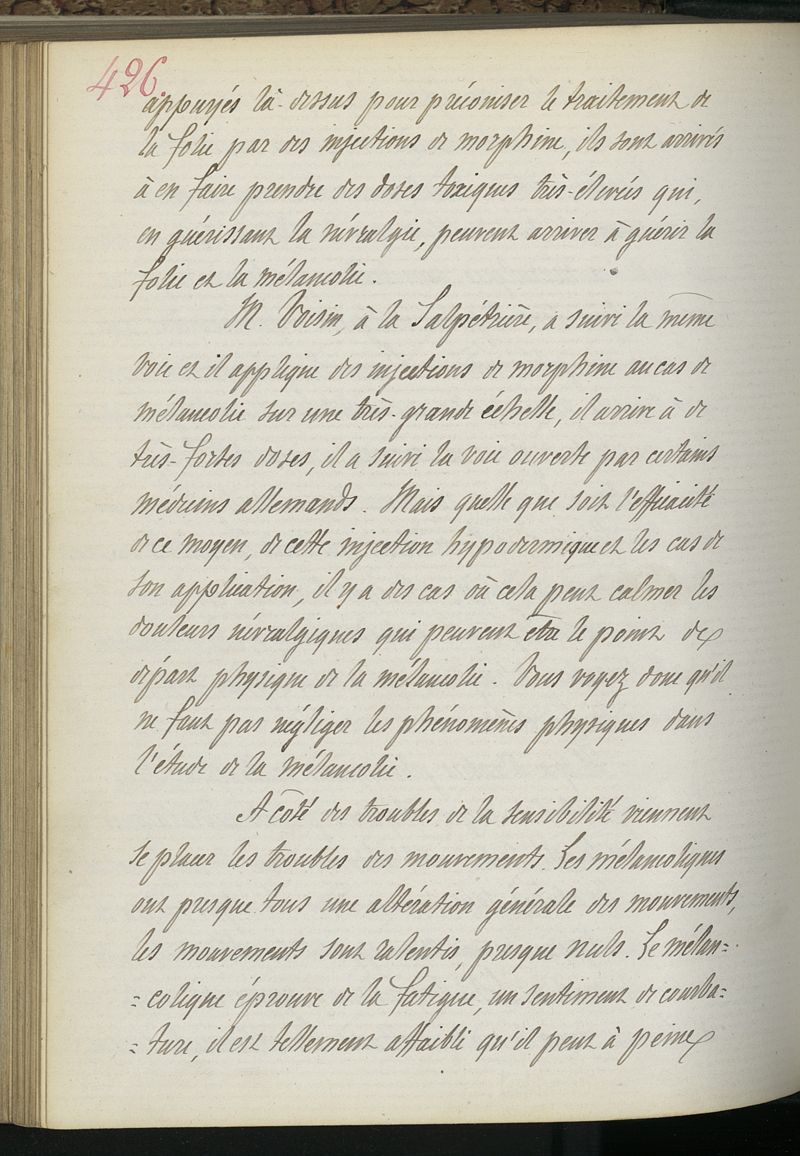 426.
appuyés là-dessus pour préconiser le traitement de
la folie par des injections de morphine, ils sont arrivés
à en faire prendre des doses toxiques très-élevées qui,
en guérissant la névralgie, peuvent arriver à guérir la
folie et la mélancolie.
M. Voisin, à la Salpétrière, a suivi la même
voie et il applique des injections de morphine au cas de
mélancolie sur une très-grande échelle, il arrive à de
très-fortes doses, il a suivi la voie ouverte par certains
médecins allemands. Mais quelle que soit l'efficacité
de ce moyen, de cette injection hypodermique et les cas de
son application, il y a des cas où cela peut calmer les
douleurs névralgiques qui peuvent être le point de
départ physique de la mélancolie. Vous voyez donc qu'il
ne faut pas négliger les phénomènes physiques dans
l'étude de la mélancolie.
A côté des troubles de la sensibilité viennent
se placer les troubles des mouvements. Les mélancoliques
ont presque tous une altération générale des mouvements,
les mouvements sont ralentis, presque nuls. Le mélan=
=colique éprouve de la fatigue, un sentiment de courba=
=ture, il est tellement affaibli qu'il peut à peine